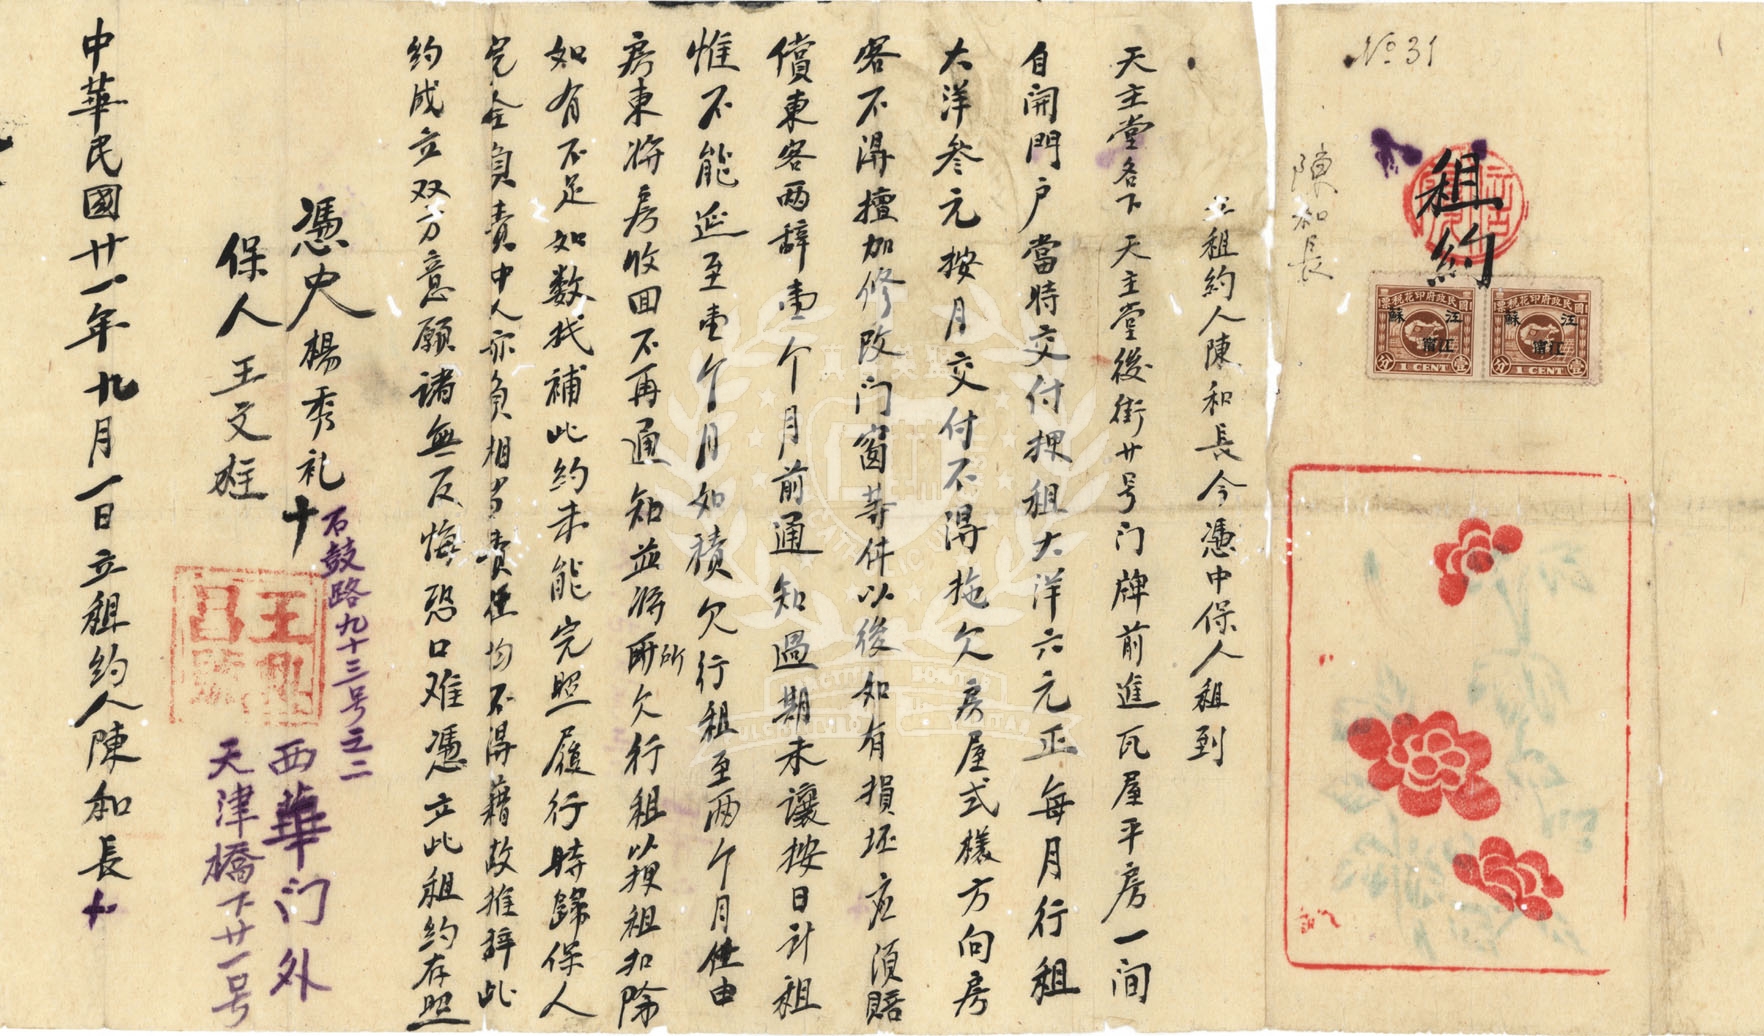 No 31
租約
國民政府印花稅票
江蘇
江寧
壹分
1 CENT
國民政府印花稅票
江蘇
江寧
壹分
1 CENT
陳和長
立租約人陳和長今憑中保人租到
天主堂名下天主堂後街廿号门牌前進瓦屋平房一间
自開門户當時交付押租大洋六元正每月行租
大洋叁元按月交付不得拖欠房屋式樣方向房
客不得擅加修改门窗等件以後如有損坯應須賠
償東客两辞壹个月前通知過期未讓按日計租
惟不能延至壹个月如積欠行租至两个月任由
房東将房收回不再通知並将所欠行租以押租扣除
如有不足如数找補此約未能完照履行時歸保人
完全負責中人亦負相當責任均不得藉故推辞此
約成立双方意願诸無反悔恐口难憑立此租約存照
憑中人楊秀礼十
石鼓路九十三号之二
保人王文旺
西華门外
天津橋下廿一号
中華民國廿一年九月一日立租約人陳和長十